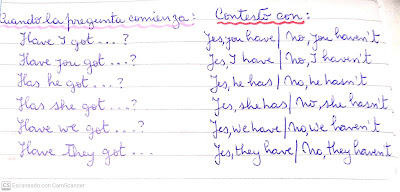 Cuando la pregunta comienza: Contesto con:
Have I got...? Yes, you have / No, you haven't
Have you got...? Yes, I have / No, I haven't
Has he got...? Yes, he has / No, he hasn't
Has she got...? Yes, she has / No, she hasn't.
Have we got...? Yes, we have / No, we haven't
Have they got... Yes, they have / No, they haven't
CS Escaneado con CamScanner